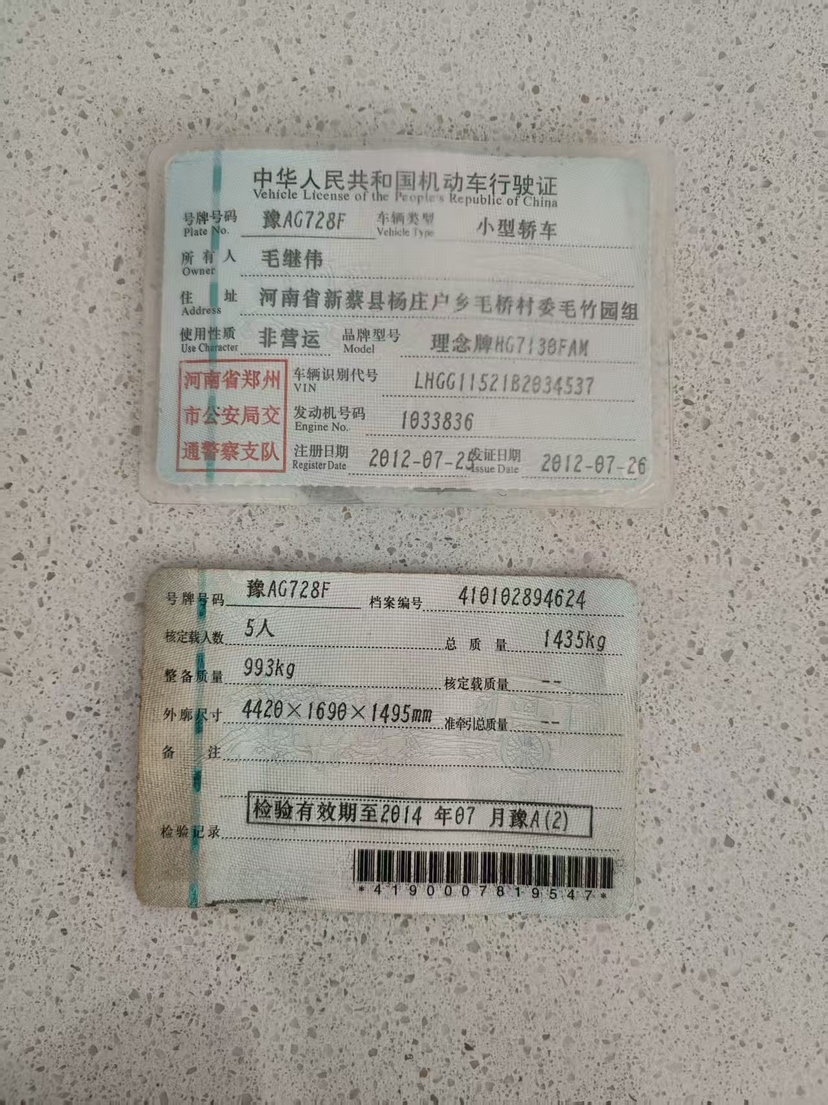 中华人民共和国机动车行驶证
Vehicle License of the People's Republic of China
号牌号码 豫AG728F 车辆类型 小型轿车
Plate No. Vehicle Type
所有人 毛继伟
Owner
住址 河南省新蔡县杨庄户乡毛桥村委毛竹园组
Address
使用性质 非营运 品牌型号 理念牌HG7130FAM
Use Character Model
河南省郑州
市公安局交
通警察支队
车辆识别代号 LHGG11521B2034537
VIN
发动机号码 1033836
Engine No.
注册日期 2012-07-25 发证日期 2012-07-26
Register Date Issue Date
号牌号码 豫AG728F 档案编号 410102894624
核定载人数 5人 总质量 1435kg
整备质量 993kg 核定载质量 --
外廓尺寸 4420×1690×1495mm 准牵引总质量 --
备注
检验有效期至2014 年07 月豫A(2)
检验记录
*4190007819547*